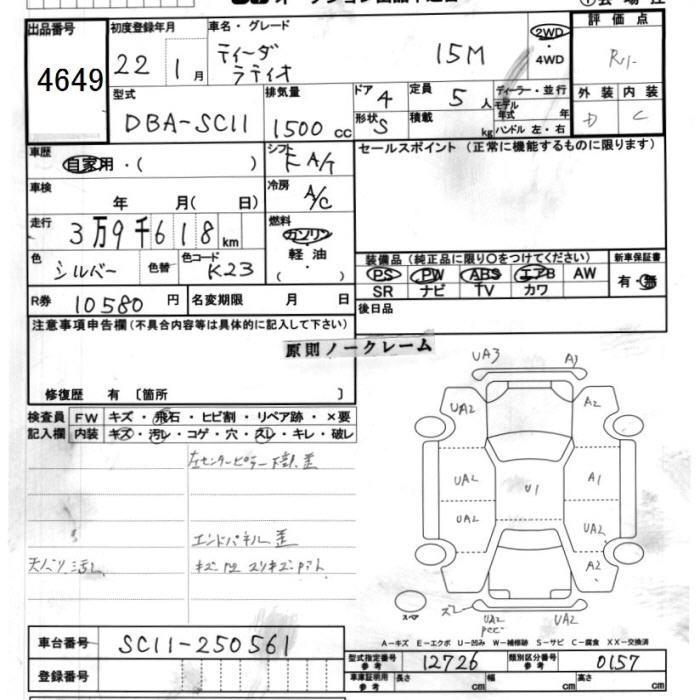 出品番号 4649
初度登録年月 22年 1月
車名・グレード ティーダ ラティオ 15M
2WD・4WD
評価点
外装 D 内装 C
型式 DBA-SC11
排気量 1500cc
ドア 4
形状 S
定員 5人
積載 kg
ディーラー・並行
モデル年式 年
ハンドル 左・右
車歴 自家用・( )
シフト F A/T
セールスポイント(正常に機能するものに限ります)
車検 年 月( 日)
冷房 A/C
走行 3万9千618km
燃料 ガソリン 軽油 ( ・ )
色 シルバー 色替 色コード K23
装備品(純正品に限り○をつけてください)
PS PW ABS エアB AW
SR ナビ TV カワ
新車保証書 有・無
R券 10580円 名変期限 月 日
後日品
注意事項申告欄(不具合内容等は具体的に記入して下さい)
原則ノークレーム
修復歴 有〔箇所 〕
検査員記入欄
FW キズ・飛石・ヒビ割・リペア跡・×要
内装 キズ・汚レ・コゲ・穴・スレ・キレ・破レ
左センターピラー下部歪
エンドパネル歪
天バリ汚レ
UA3 A3
UA2 A2
UA2 U1 A1
UA2 UA2
A2
スペア
ズレ UA2 UA2
A-キズ E-エクボ U-凹み W-補修跡 S-サビ C-腐食 XX-交換済
車台番号 SC11-250561
登録番号
型式指定番号 参考 12726 類別区分番号 参考 0157
車庫証明用 参考 長さ cm 幅 cm 高さ cm